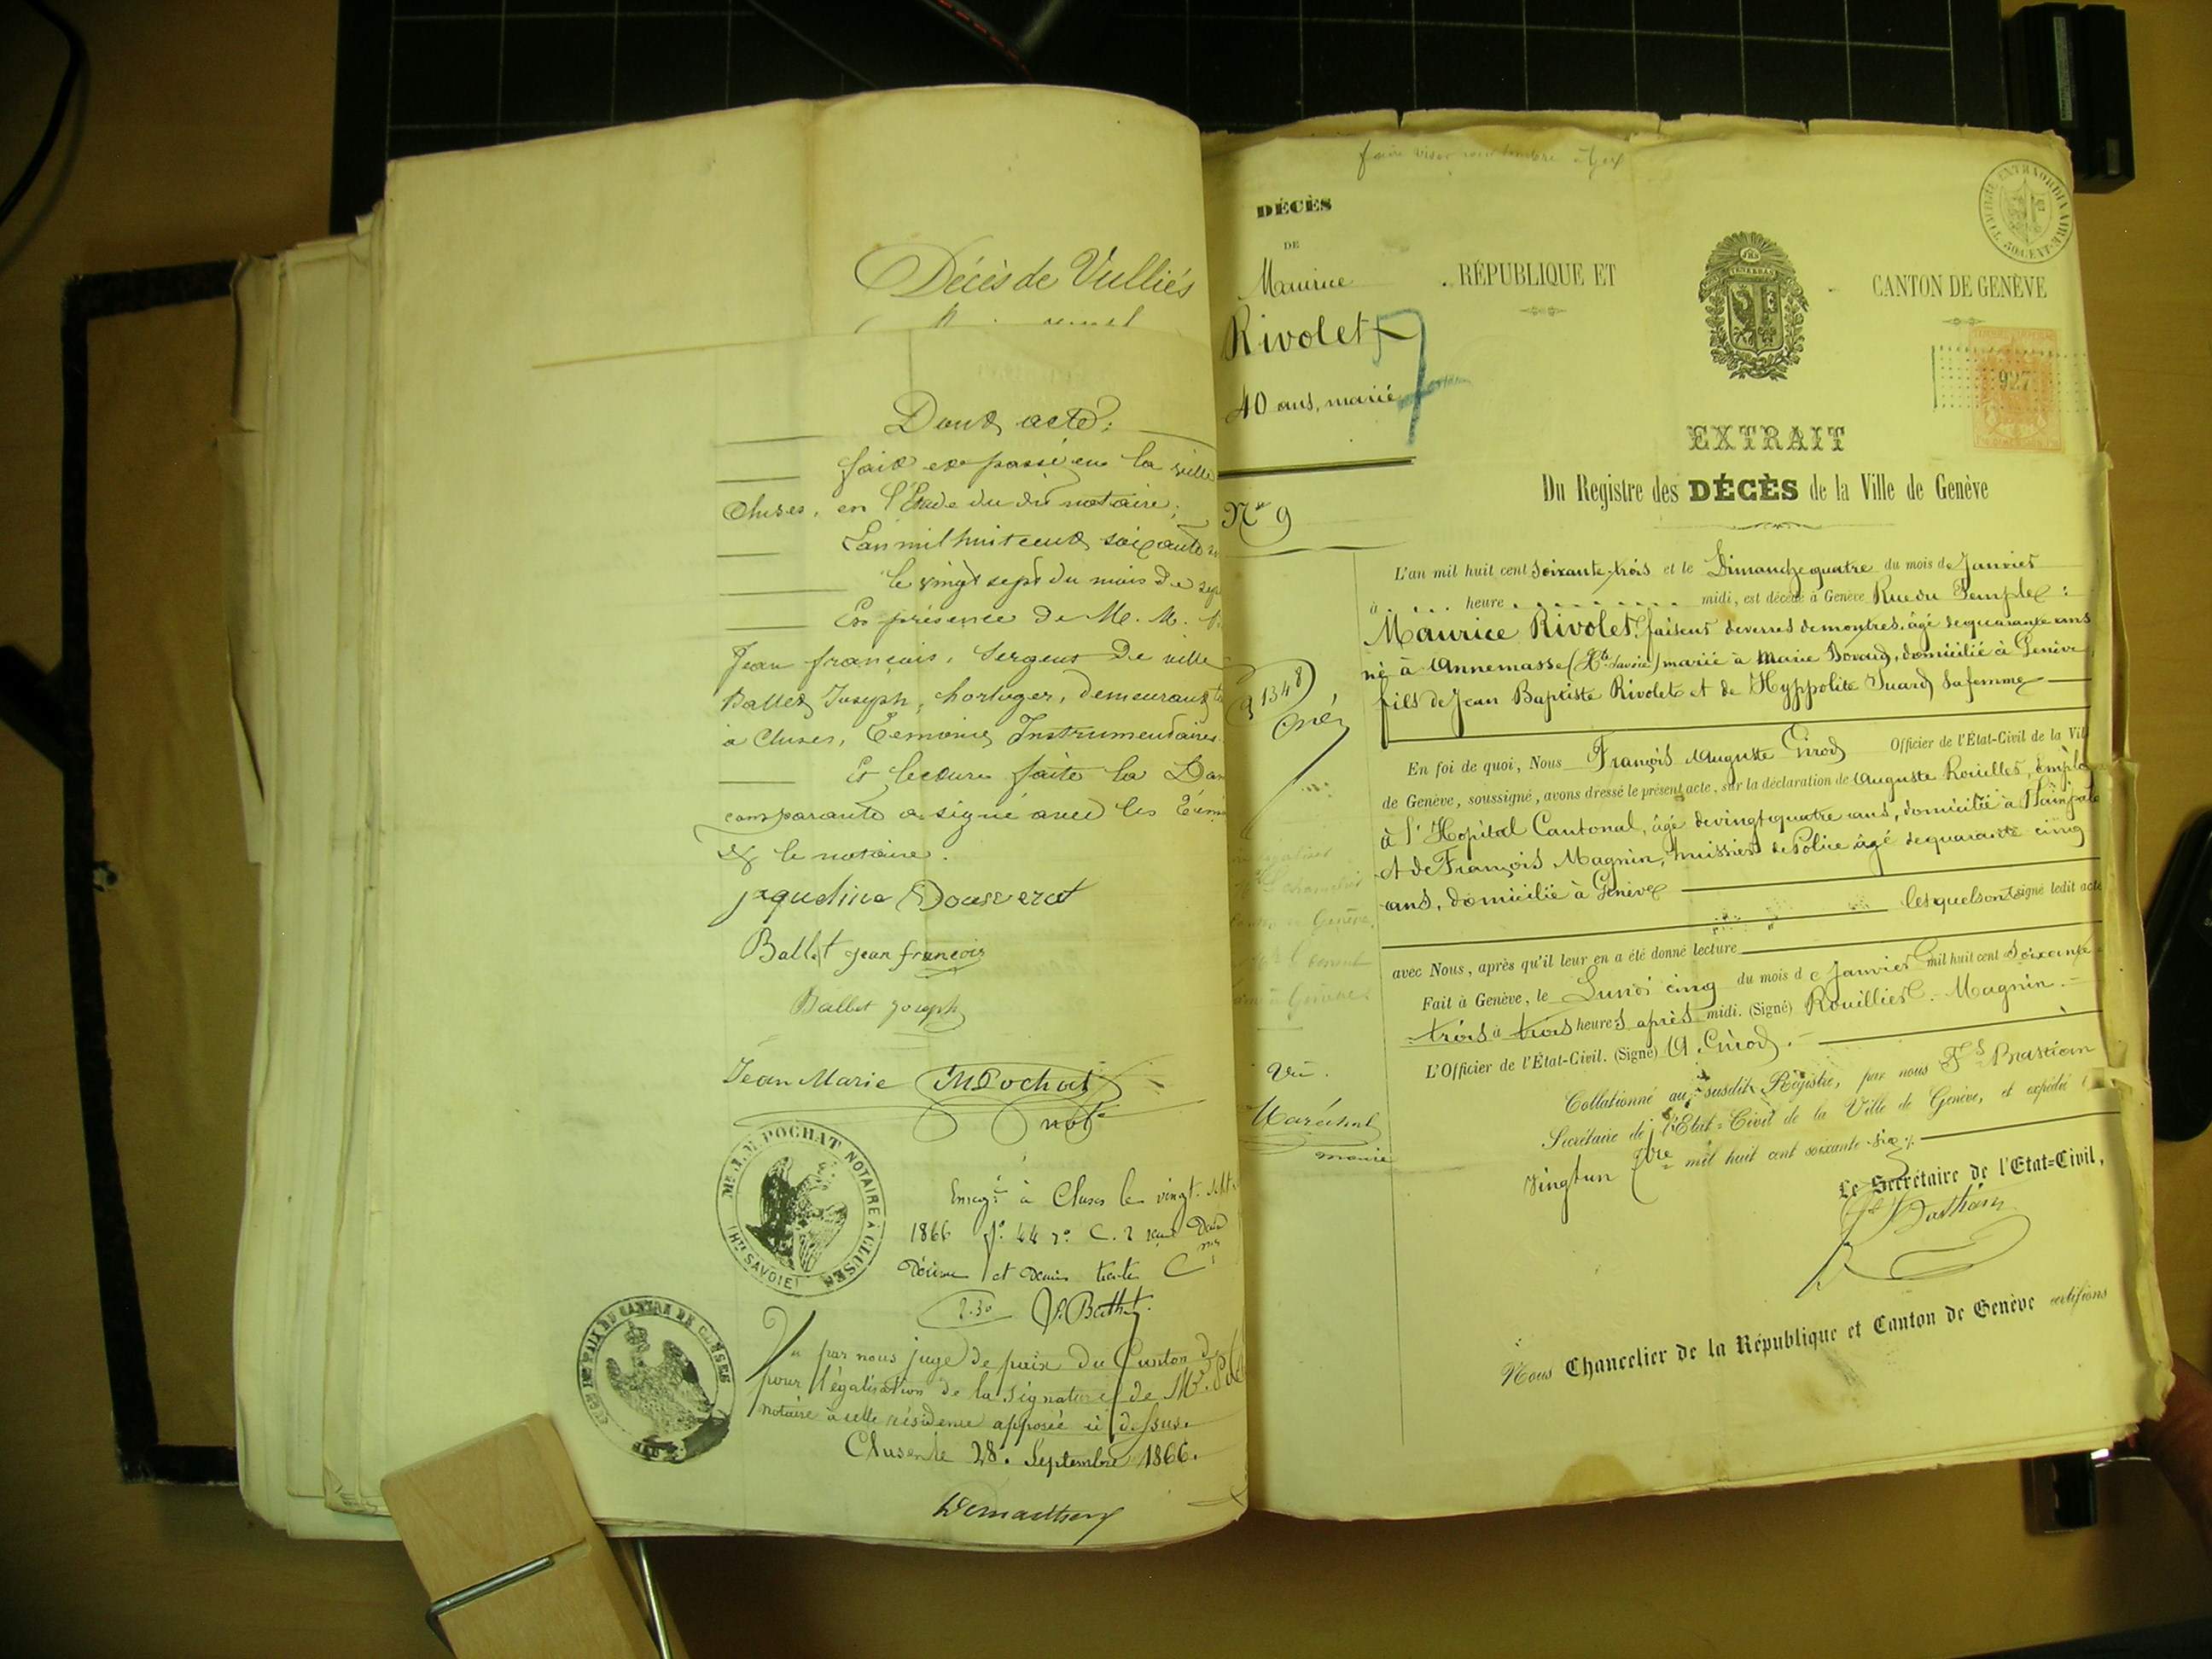 Décès de Vulliés
Dont acte:
fait et passé en la ville
Cluses, en l'Etude du dit notaire;
L'an mil huit cent soixante
le vingt sept du mois de sep
En présence de M. M.
Jean françois, Sergent de ville
Ballet Joseph, horloger, demeurant
à Cluses, Témoins Instrumentaires
Et lecture faite la Dam
comparante a signé avec les Tém
& le notaire.
jaqueline Donverat
Ballet jean francois
Ballet joseph
Jean Marie JMPochat
not
Me. J. M. POCHAT NOTAIRE À CLUSES
(HTE SAVOIE)
Enregé à Cluses le vingt-sept
1866 fo. 44 ro. C. 2 reçu Deux
décime et demi trente Cmes
2.30
Vu par nous juge de paix du Canton de
pour légalisation de la signature de Mr. P
notaire à cette résidence apposée ci dessus.
Cluses le 28. Septembre 1866.
faire viser timbre à Gex
TIMBRE EXTRAORDINAIRE
50 CENT
DÉCÈS
DE
Maurice
Rivolet
40 ans, marié
RÉPUBLIQUE ET CANTON DE GENÈVE
927
EXTRAIT
Du Registre des DÉCÈS de la Ville de Genève
No 9
L'an mil huit cent soixante-trois et le Dimanche quatre du mois de Janvier
à . . . . heure . . . . . . . . midi, est décédé à Genève Rue du Temple:
Maurice Rivolet, faiseur de verres de montres, âgé de quarante ans
né à Annemasse (Hte Savoie) marié à Marie Bovard, domicilié à Genève,
fils de Jean Baptiste Rivolet et de Hyppolite Suard sa femme
1348
En foi de quoi, Nous François Auguste Girod Officier de l'État-Civil de la Vil
de Genève, soussigné, avons dressé le présent acte, sur la déclaration de Auguste Rouiller, employ
à l'Hopital Cantonal, âgé de vingt quatre ans, domicilié à Plainpala
et de François Magnin, huissier de Police âgé de quarante cinq
ans, domicilié à Genève
lesquels ont signé ledit acte
avec Nous, après qu'il leur en a été donné lecture
Fait à Genève, le Lundi cinq du mois de Janvier mil huit cent soixante
trois à trois heures après midi. (Signé) Rouiller. Magnin.
L'Officier de l'État-Civil. (Signé) A. Girod.
Vu.
Collationné au susdit Régistre, par nous Fs Bastian
Secrétaire de l'Etat-Civil de la Ville de Genève, et expédié l
Maréchal
mairie
vingt un 7bre mil huit cent soixante six
Le Secrétaire de l'Etat-Civil,
Fs Bastian
Nous Chancelier de la République et Canton de Genève certifions